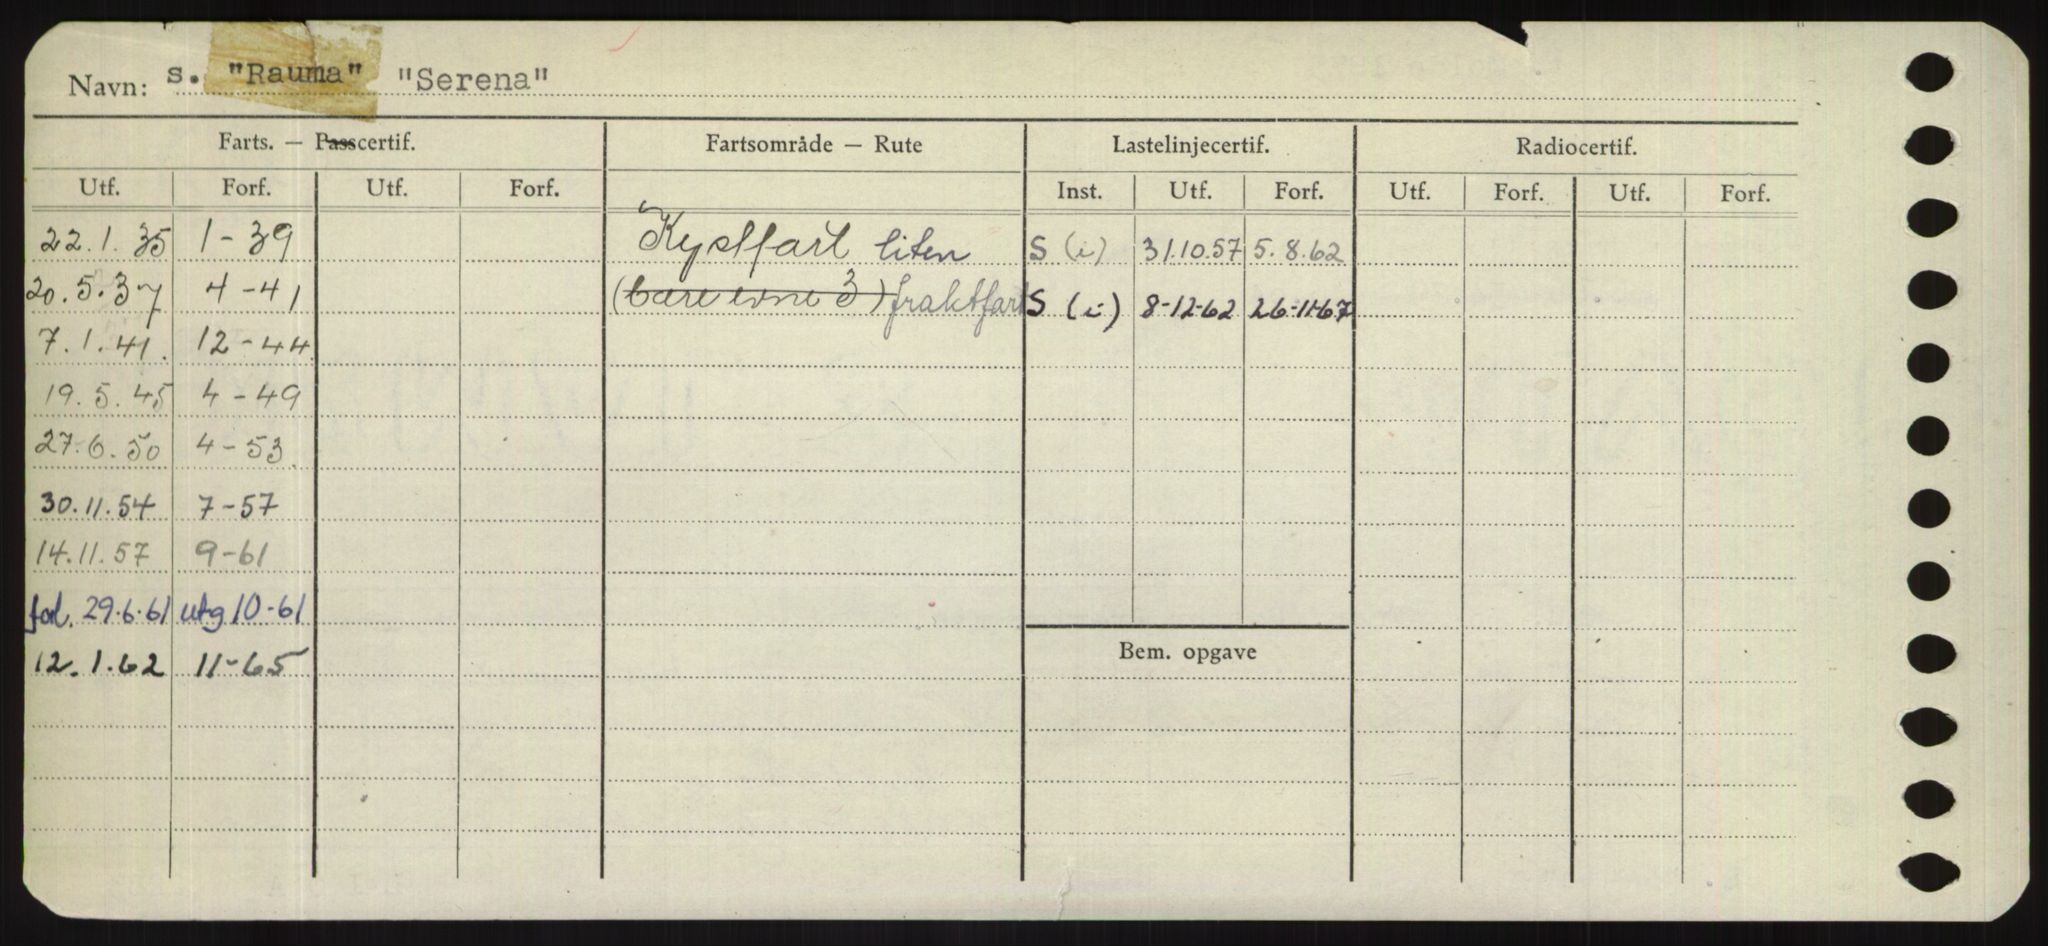 Navn: s. "Rauma" "Serena"
Farts. — Passcertif. Fartsområde — Rute Lastelinjecertif. Radiocertif.
Utf. Forf. Utf. Forf. Inst. Utf. Forf. Utf. Forf. Utf. Forf.
22.1.35 1-39 Kystfart liten S (i) 31.10.57 5.8.62
20.5.37 4-41 (bare evne 3) fraktfart S (i) 8-12-62 26-11-67
7.1.41. 12-44.
19.5.45 4-49
27.6.50 4-53.
30.11.54 7-57
14.11.57 9-61
forl. 29.6.61 utg 10-61
Bem. opgave
12.1.62 11-65